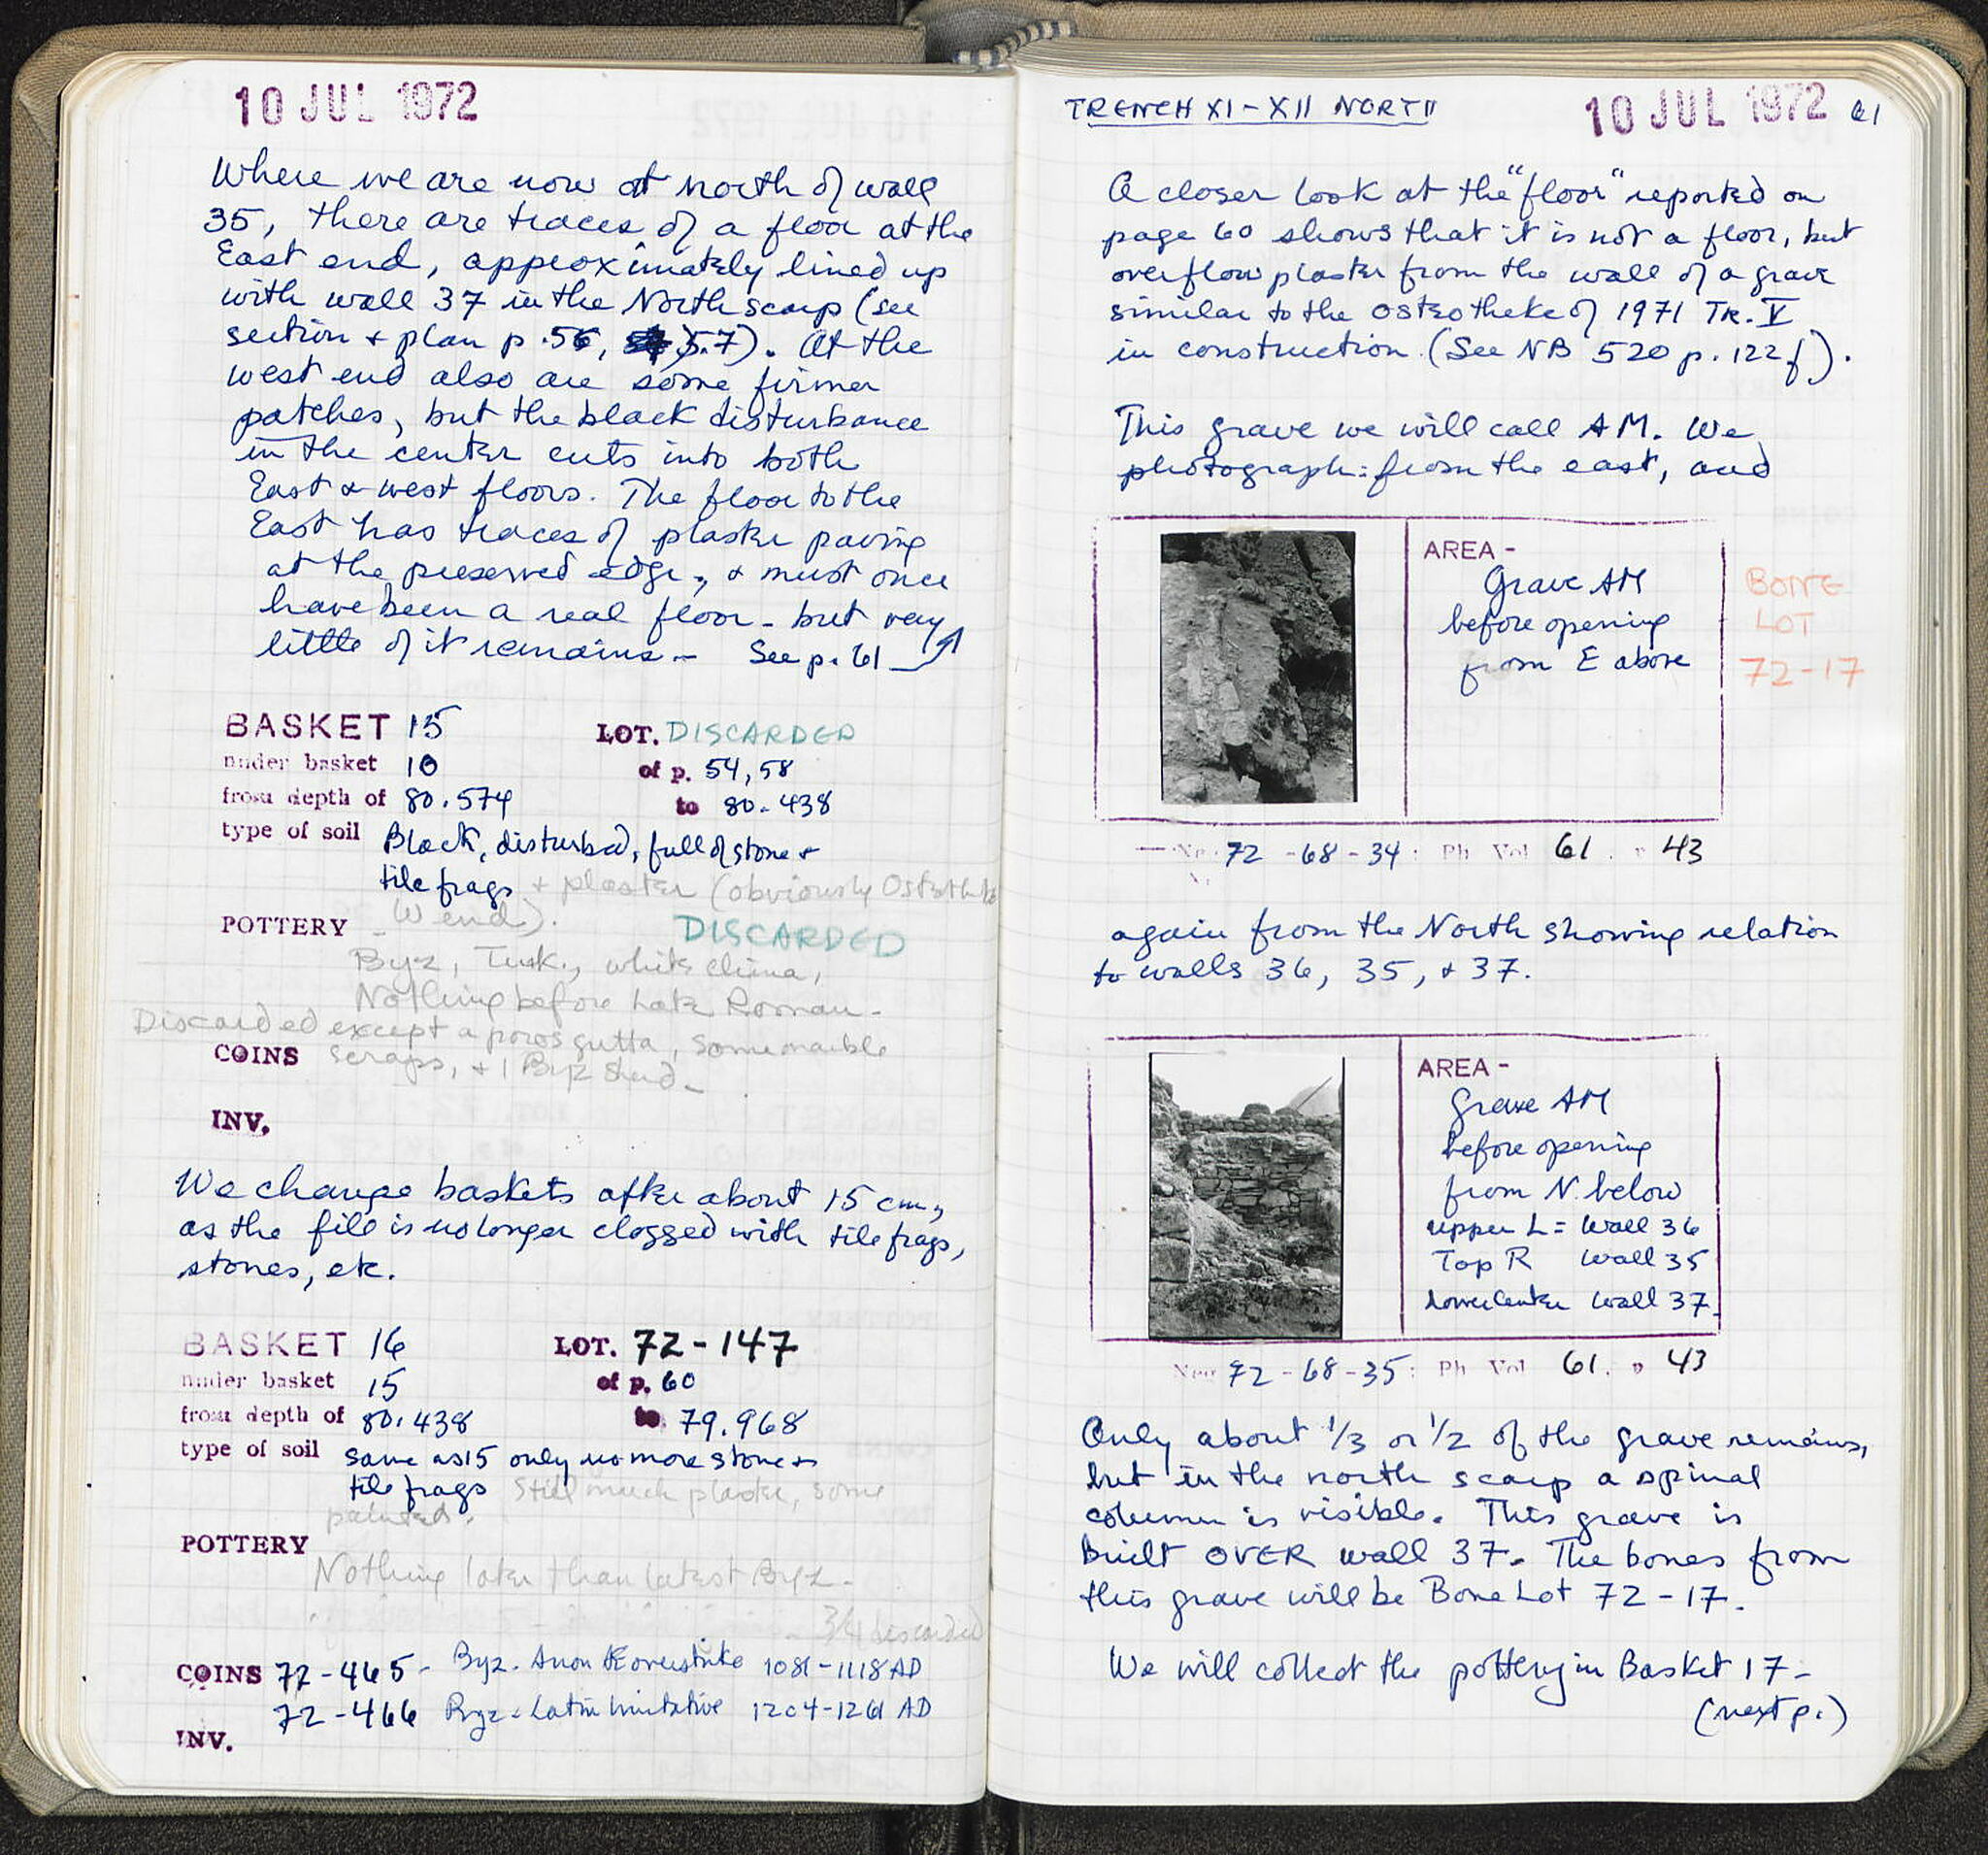 10 JUL 1972
Where we are now at north of wall
35, there are traces of a floor at the
East end, approximately lined up
with wall 37 in the North scarp (see
section + plan p. 56, 57). At the
west end also are some firmer
patches, but the black disturbance
in the center cuts into both
East & west floors. The floor to the
East has traces of plaster paving
at the preserved edge, & must once
have been a real floor - but very
little of it remains. - See p. 61
BASKET 15 LOT. DISCARDED
under basket 10 of p. 54, 58
from depth of 80.574 to 80.438
type of soil Black, disturbed, full of stone +
tile frags + plaster (obviously Osteotheke
W end).
POTTERY DISCARDED
Byz, Turk., white china,
Nothing before Late Roman -
Discarded except a poros gutta, some marble
COINS scraps, + 1 Byz sherd -
INV.
We change baskets after about 15 cm,
as the fill is no longer clogged with tile frags,
stones, etc.
BASKET 16 LOT. 72-147
under basket 15 of p. 60
from depth of 80.438 to 79.968
type of soil same as 15 only no more stone +
tile frags Still much plaster, some
painted.
POTTERY
Nothing later than latest Byz -
3/4 discarded
COINS 72-465 - Byz. Anon overstrike 1081-1118 AD
72-466 Byz - Latin Imitative 1204-1261 AD
INV.
TRENCH XI-XII NORTH 10 JUL 1972 61
A closer look at the "floor" reported on
page 60 shows that it is not a floor, but
overflow plaster from the wall of a grave
similar to the osteotheke of 1971 Tr. V
in construction. (See NB 520 p. 122f).
This grave we will call AM. We
photograph: from the east, and
AREA -
Grave AM
before opening
from E above
BONE
LOT
72-17
Neg 72-68-34: Ph Vol 61. p 43
again from the North showing relation
to walls 36, 35, + 37.
AREA -
Grave AM
before opening
from N. below
upper L = Wall 36
Top R Wall 35
Lower Center Wall 37.
Neg 72-68-35: Ph Vol 61. p 43
Only about 1/3 or 1/2 of the grave remains,
but in the north scarp a spinal
column is visible. This grave is
built OVER wall 37. The bones from
this grave will be Bone Lot 72-17.
We will collect the pottery in Basket 17 -
(next p.)